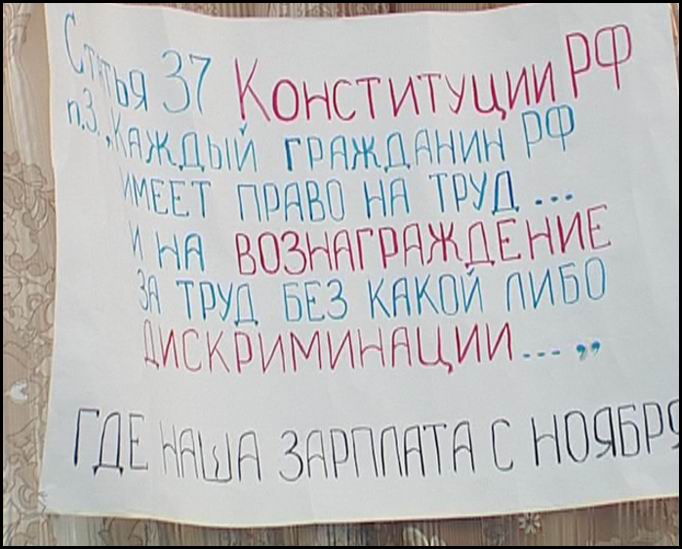 Статья 37 Конституции РФ
п.3. „Каждый гражданин РФ
имеет право на труд...
и на вознаграждение
за труд без какой либо
дискриминации...”
Где наша зарплата с ноября